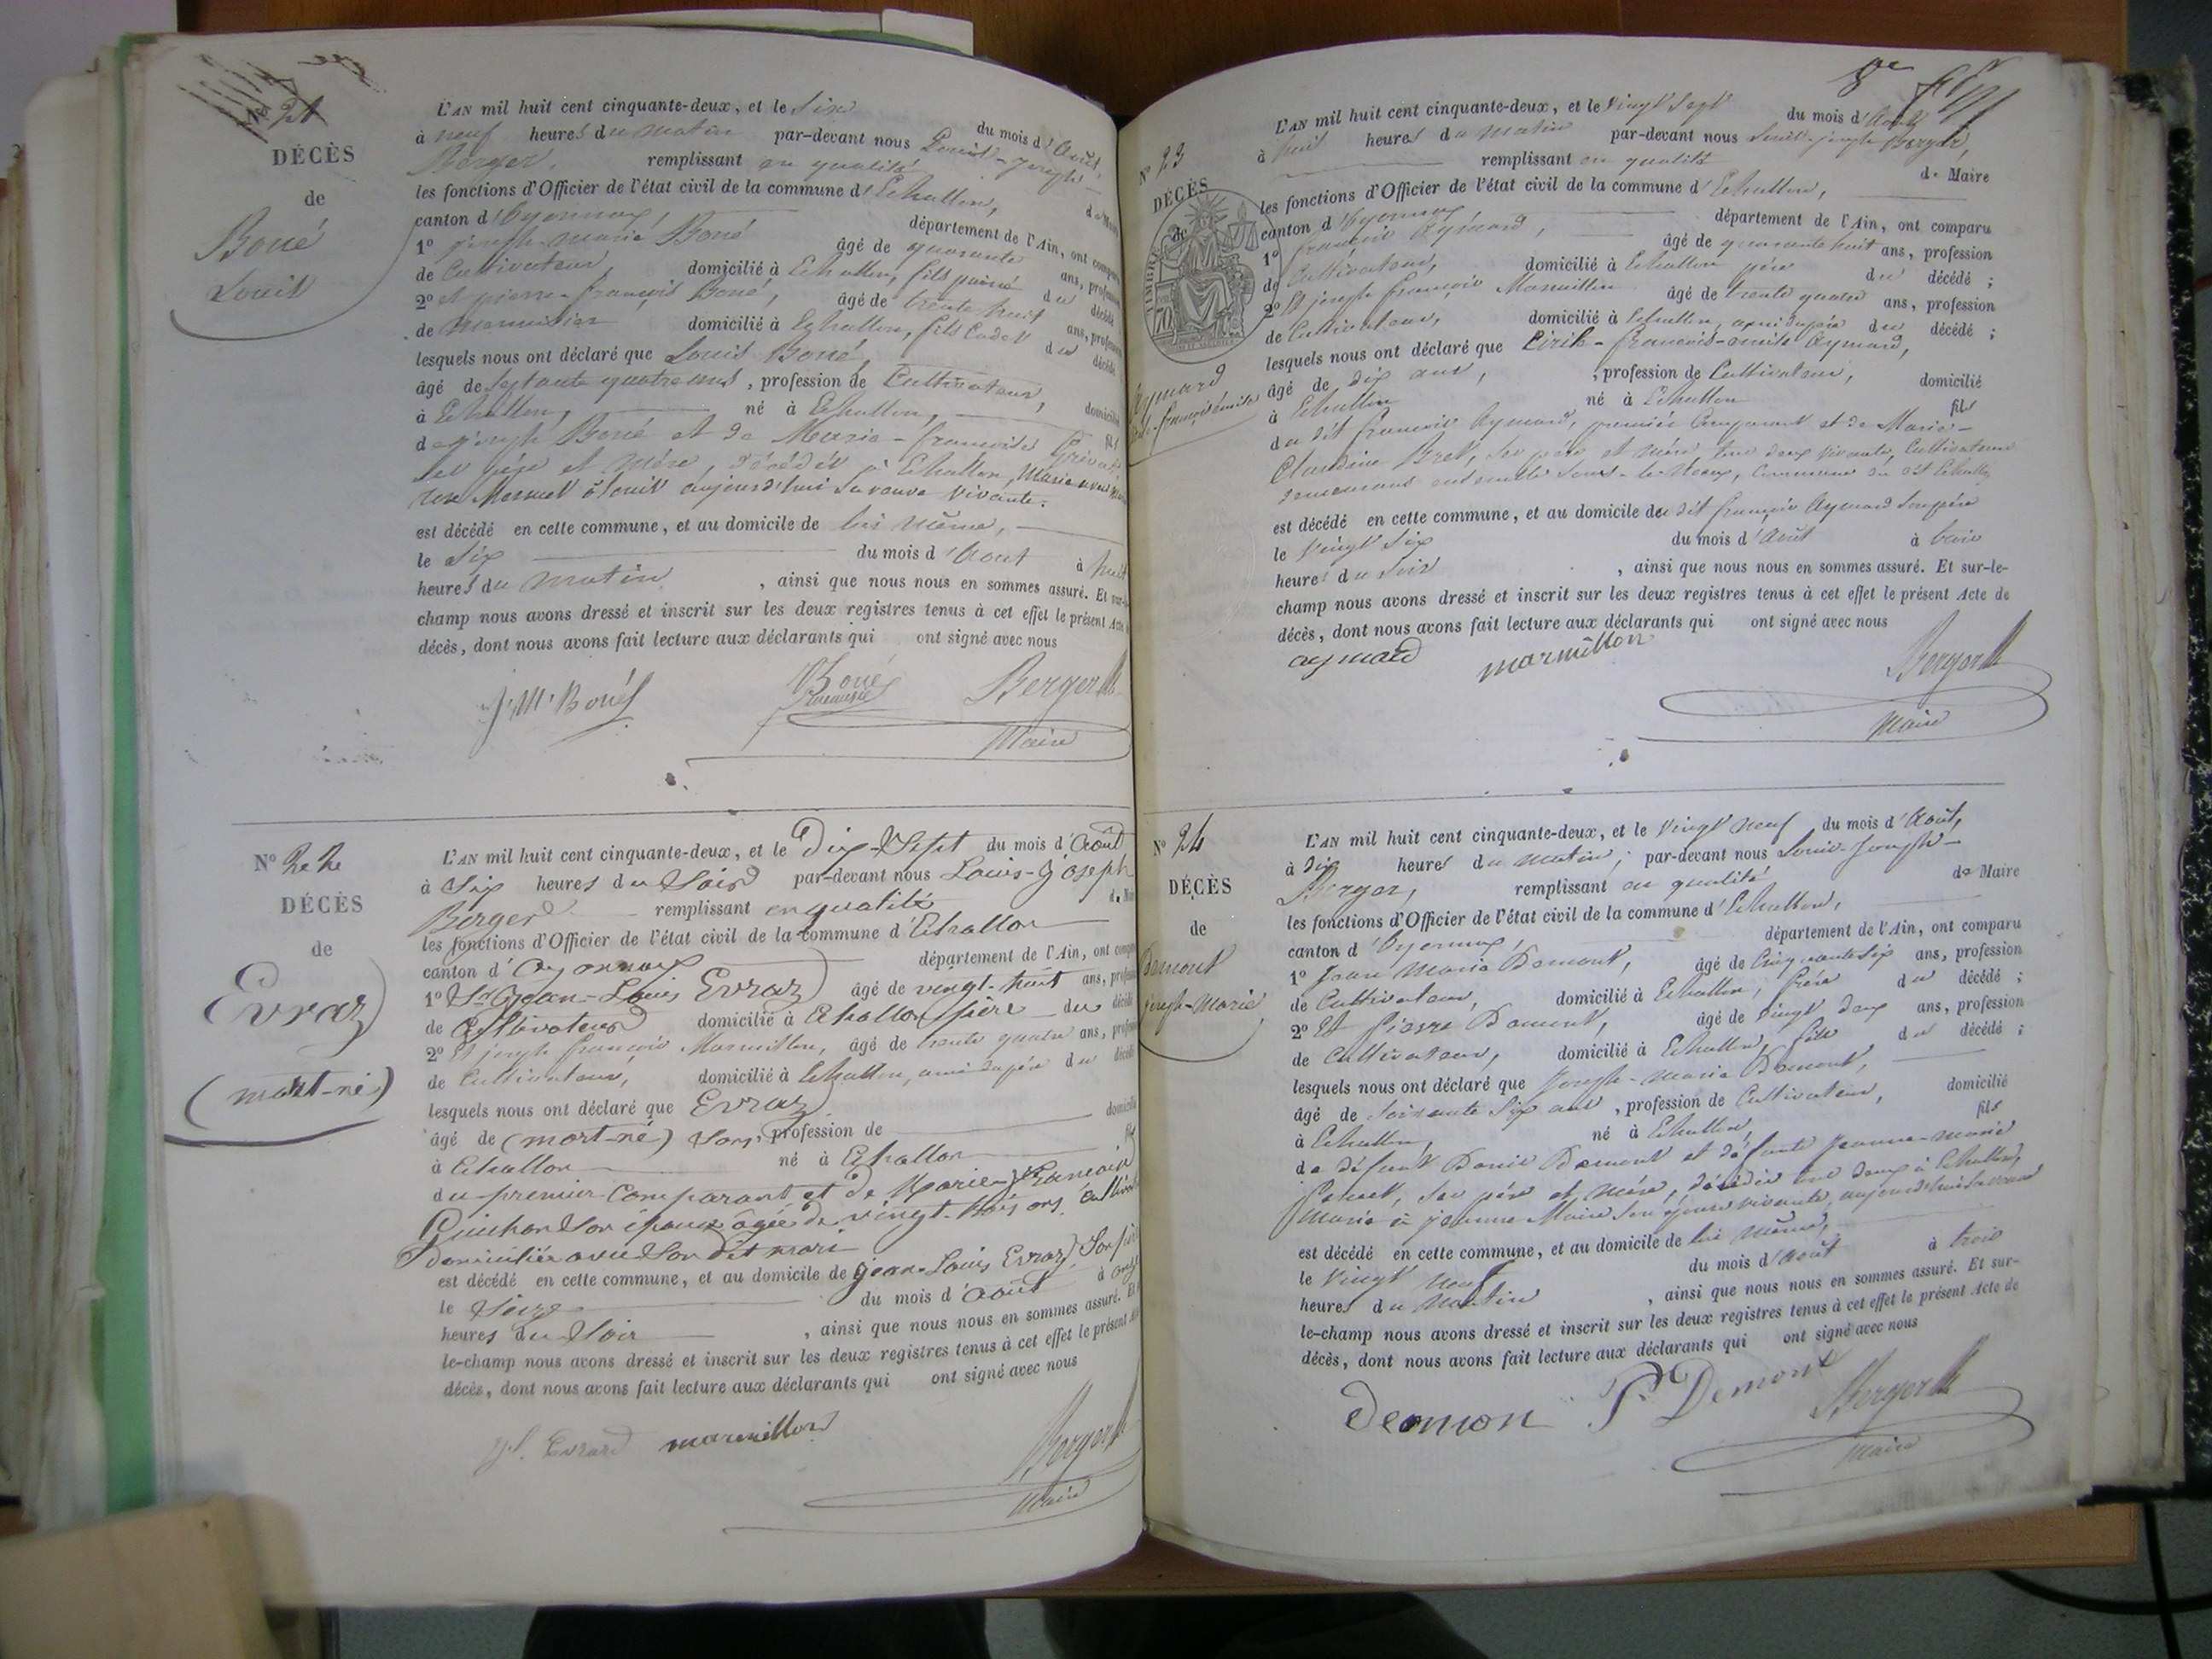 N° 21
DÉCÈS
de
Boué
Louis
L'AN mil huit cent cinquante-deux, et le Six du mois d'Août
à neuf heures du matin par-devant nous Louis-Joseph
Berger, remplissant en qualité de Maire
les fonctions d'Officier de l'état civil de la commune d'Echallon,
canton d'Oyonnax, département de l'Ain, ont comparu
1° joseph-marie Boué âgé de quarante ans, profession
de Cultivateur, domicilié à Echallon, fils puiné du décédé
2° et pierre-françois Boué, âgé de trente huit ans, profession
de menuisier domicilié à Echallon, fils Cadet du décédé
lesquels nous ont déclaré que Louis Boué,
âgé de septante quatre ans, profession de Cultivateur, domicilié
à Echallon, né à Echallon, fils
de joseph Boué et de Marie-françoise
ses père et mère, décédés à Echallon, Marié
aujourd'hui sa veuve vivante.
est décédé en cette commune, et au domicile de lui même,
le Six du mois d'Août à huit
heures du matin, ainsi que nous nous en sommes assuré. Et sur-le-
champ nous avons dressé et inscrit sur les deux registres tenus à cet effet le présent Acte de
décès, dont nous avons fait lecture aux déclarants qui ont signé avec nous
J M Boué Boué Berger
Maire
N° 22
DÉCÈS
de
Evraz
(mort-né)
L'AN mil huit cent cinquante-deux, et le Dix-Sept du mois d'Août
à Six heures du Soir par-devant nous Louis-Joseph
Berger remplissant en qualité de Maire
les fonctions d'Officier de l'état civil de la commune d'Echallon
canton d'Oyonnax département de l'Ain, ont comparu
1° Sr Jean-Louis Evraz âgé de vingt-huit ans, profession
de Cultivateur domicilié à Echallon père du décédé
2° Et joseph françois Marmillon, âgé de trente quatre ans, profession
de Cultivateur, domicilié à Echallon, ami du père du décédé
lesquels nous ont déclaré que Evraz
âgé de (mort-né) Sans profession de domicilié
à Echallon né à Echallon fils
du premier Comparant et de Marie
Son épouse âgée de vingt-trois ans,
Domiciliée avec Son dit mari
est décédé en cette commune, et au domicile de Jean-Louis Evraz, Son père
le Seize du mois d'Août à onze
heures du Soir, ainsi que nous nous en sommes assuré. Et sur-
le-champ nous avons dressé et inscrit sur les deux registres tenus à cet effet le présent Acte de
décès, dont nous avons fait lecture aux déclarants qui ont signé avec nous
J. L. Evrard marmillon Berger
Maire
N° 23
DÉCÈS
de
TIMBRE
70
Aymard
L'AN mil huit cent cinquante-deux, et le vingt Sept du mois d'Août
à huit heures du matin par-devant nous Louis-joseph Berger,
remplissant en qualité de Maire
les fonctions d'Officier de l'état civil de la commune d'Echallon,
canton d'Oyonnax département de l'Ain, ont comparu
1° françois Aymard, âgé de quarante huit ans, profession
de Cultivateur, domicilié à Echallon père du décédé ;
2° Et joseph françois Marmillon âgé de trente quatre ans, profession
de Cultivateur, domicilié à Echallon, ami du père du décédé ;
lesquels nous ont déclaré que Cirile-francois-emile Aymard,
âgé de dix ans, ; profession de Cultivateur, domicilié
à Echallon né à Echallon fils
du dit françois Aymard, premier Comparant et de Marie-
Claudine Bret, ses père et mère, tous deux vivants, Cultivateurs
demeurans ensemble Commune du dit Echallon
est décédé en cette commune, et au domicile du dit françois Aymard Son père
le vingt Six du mois d'Août à trois
heures du Soir, ainsi que nous nous en sommes assuré. Et sur-le-
champ nous avons dressé et inscrit sur les deux registres tenus à cet effet le présent Acte de
décès, dont nous avons fait lecture aux déclarants qui ont signé avec nous
aymard marmillon Berger
Maire
N° 24
DÉCÈS
de
Demont
joseph-Marie
L'AN mil huit cent cinquante-deux, et le vingt neuf du mois d'Août,
à Dix heures du matin, par-devant nous Louis-Joseph
Berger, remplissant en qualité de Maire
les fonctions d'Officier de l'état civil de la commune d'Echallon,
canton d'Oyonnax, département de l'Ain, ont comparu
1° Jean Marie Demont, âgé de Cinquante Six ans, profession
de Cultivateur, domicilié à Echallon, frère du décédé ;
2° Et Pierre Demont, âgé de vingt deux ans, profession
de Cultivateur, domicilié à Echallon, fils du décédé ;
lesquels nous ont déclaré que Joseph-Marie Demont,
âgé de Soixante Six ans, profession de Cultivateur, domicilié
à Echallon, né à Echallon, fils
de défunt Demont et défunte Jeanne-Marie
ses père et mère, décédés tous deux à Echallon,
Marié à jeanne Son épouse vivante, aujourd'hui Sa veuve
est décédé en cette commune, et au domicile de lui même,
le vingt neuf du mois d'Août à trois
heures du Matin, ainsi que nous nous en sommes assuré. Et sur-
le-champ nous avons dressé et inscrit sur les deux registres tenus à cet effet le présent Acte de
décès, dont nous avons fait lecture aux déclarants qui ont signé avec nous
Demon P Demont Berger
Maire